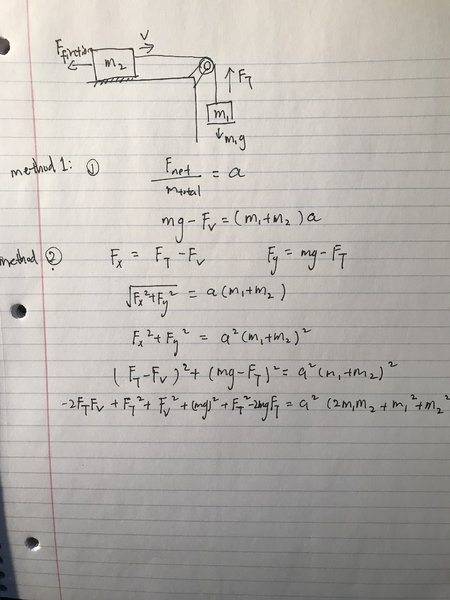 V
F friction
m₂
F_T
m₁
m₁g
method 1: ① F_net / m_total = a
mg - F_v = (m₁+m₂) a
method ② F_x = F_T - F_v F_y = mg - F_T
√(F_x²+F_y²) = a(m₁+m₂)
F_x²+F_y² = a²(m₁+m₂)²
(F_T-F_v)²+(mg-F_T)² = a²(m₁+m₂)²
-2F_TF_v + F_T² + F_v² + (mg)² + F_T² - 2mgF_T = a² (2m₁m₂ + m₁² + m₂²